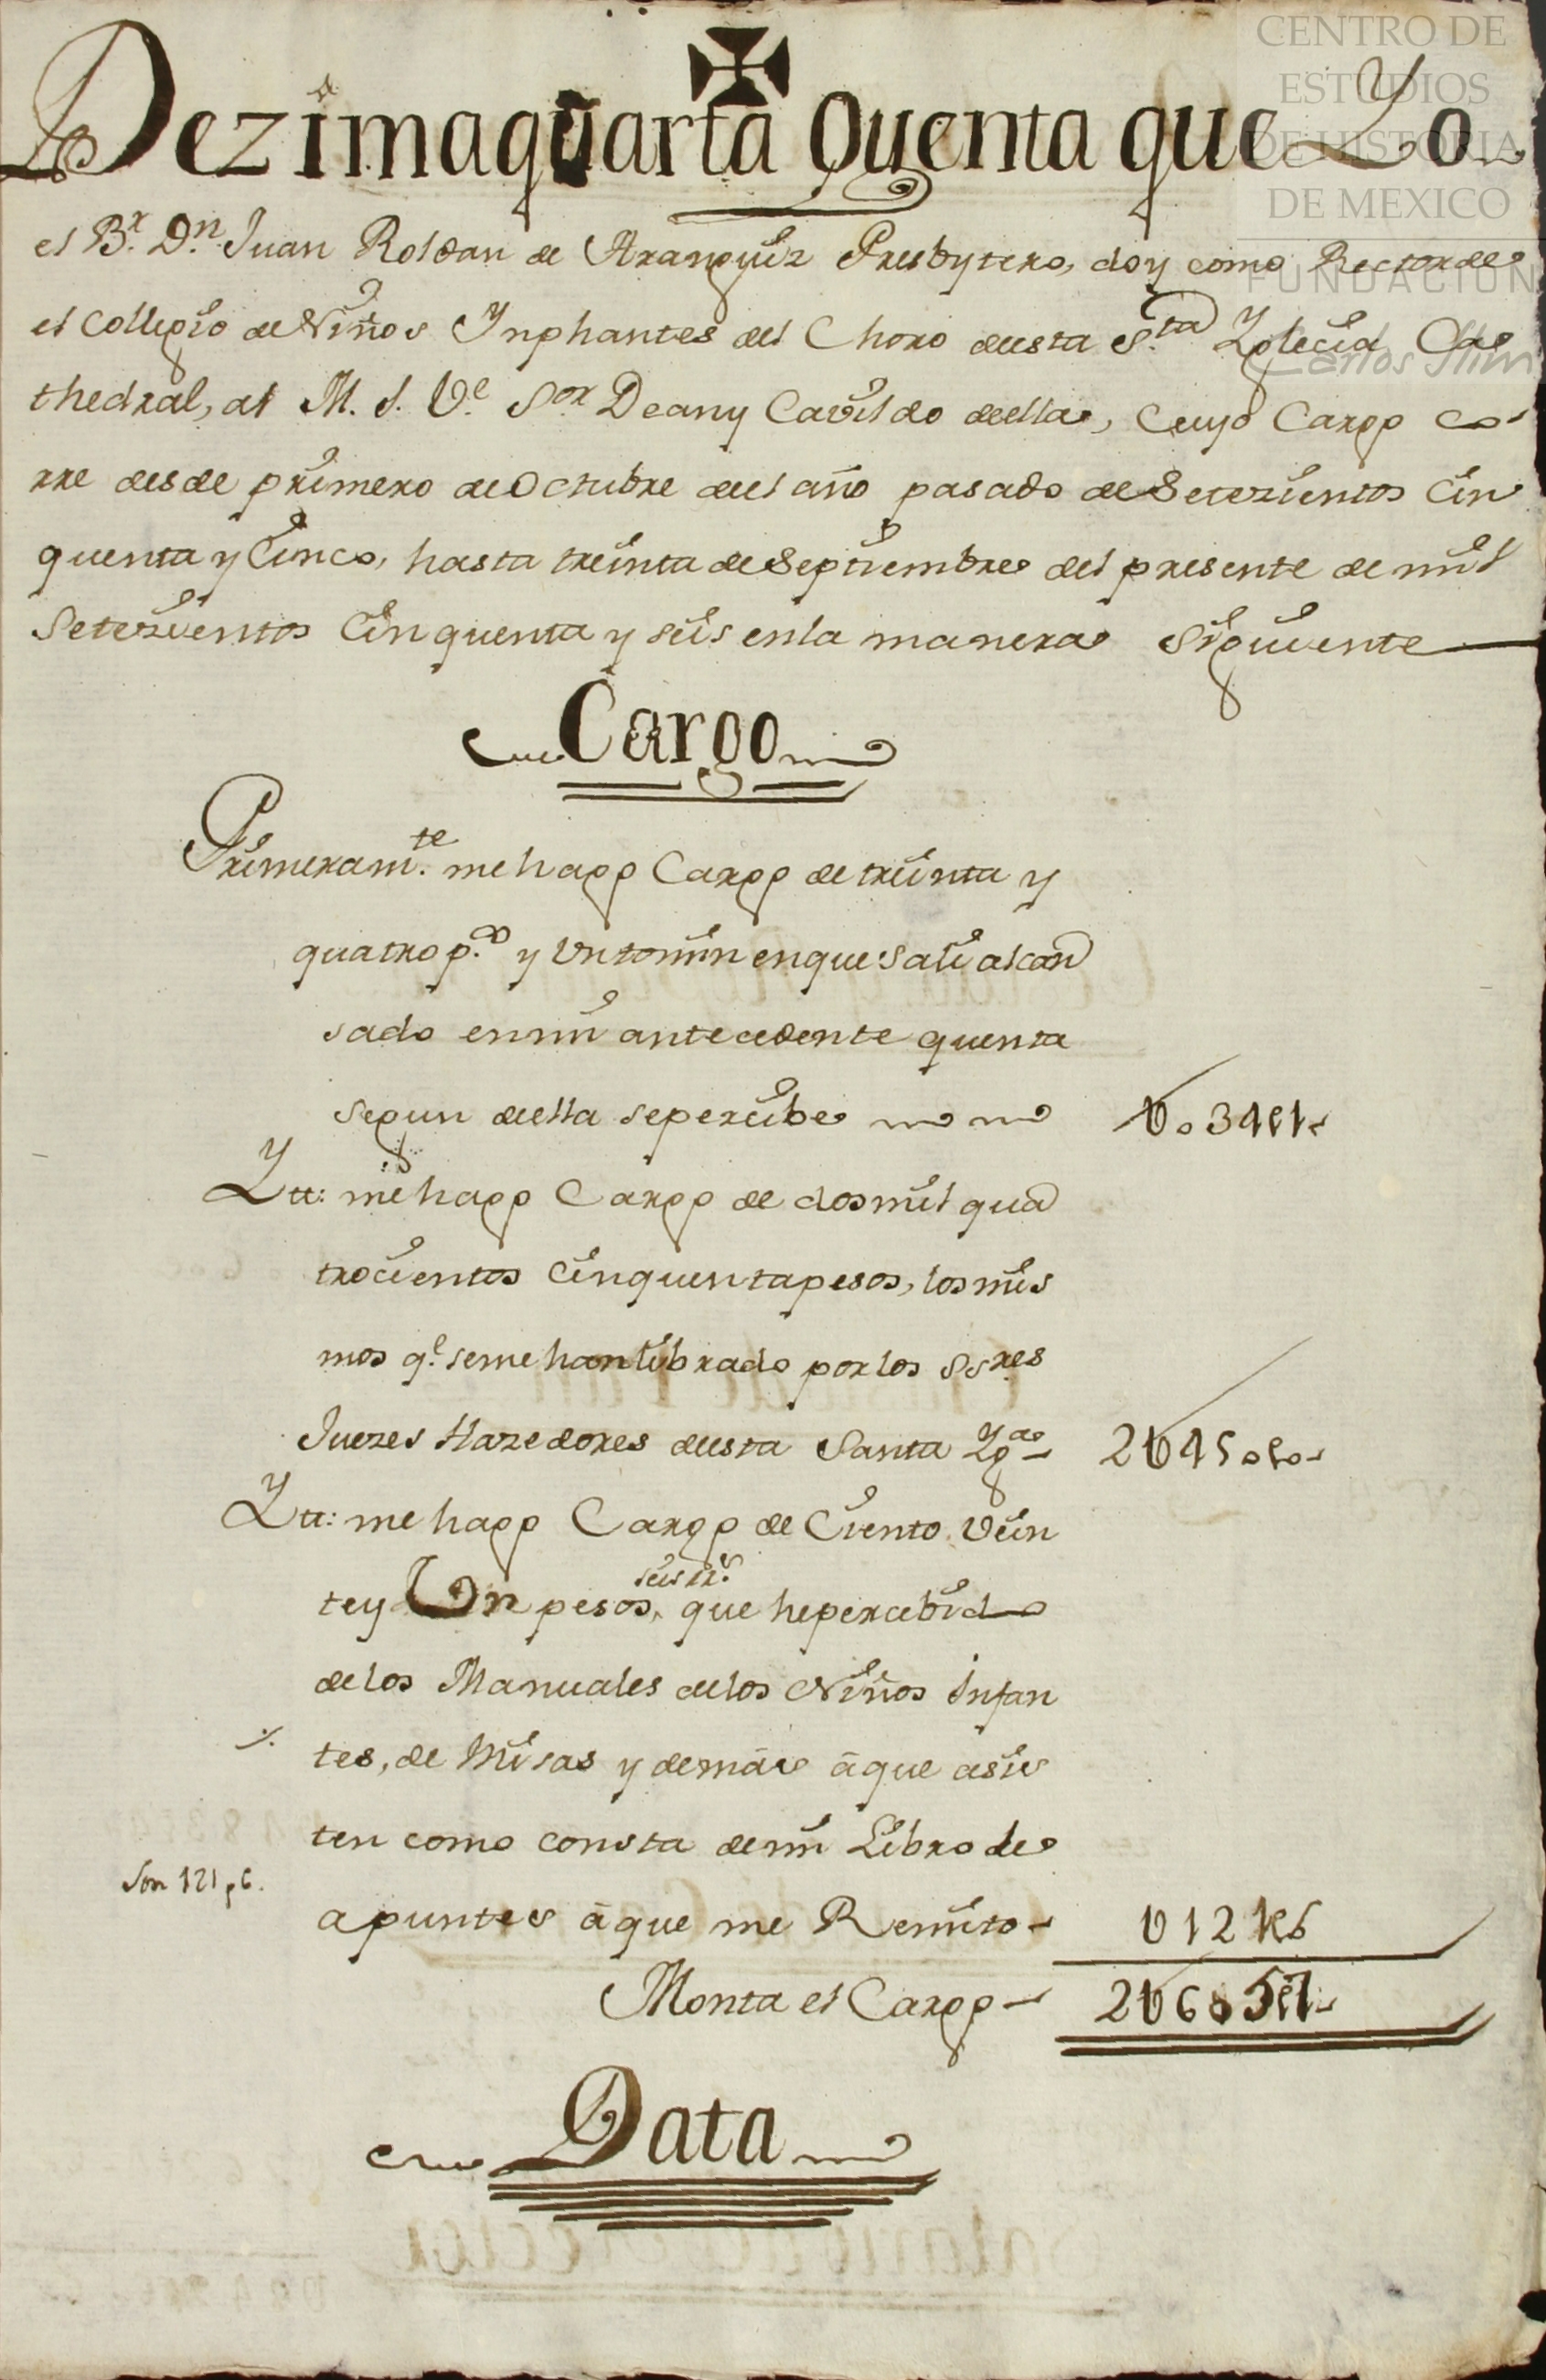 CENTRO DE
ESTUDIOS
DE HISTORIA
DE MEXICO
FUNDACION
Carlos Slim
Dezimaquarta Quenta que Yo
el B.r D.n Juan Roldan de Aranguiz Presbytero, doy como Rector de
el Collegio de Niños Ynphantes del Choro deesta S.ta Yglecia Ca
thedral, al M. J. V.e S.or Dean y Cavildo deella, Cuyo Cargo co
rre desde primero de Octubre deel año pasado de Setezientos Cin
quenta y Cinco, hasta treinta de Septiembre del presente de mil
Setezientos Cinquenta y seis en la manera Siguiente
Cargo
Primeram.te me hago Cargo de treinta y
quatro p.s y Un tomin en que Sali alcan
sado en mi antecedente quenta
segun deella se percibe
U034p1
Ytt: me hago Cargo de dos mil qua
trocientos Cinquenta pesos, los mis
mos q.e se me han librado por los SS.res
Juezes Hazedores deesta Santa Yg.a
2U450p0
Ytt: me hago Cargo de Ciento Vein
seis rr.s
te y Un pesos, que he percebido
de los Manuales de los Niños Infan
tes, de Misas y demás á que asis
ten como consta de mi Libro de
Son 121p6.
apuntes á que me Remito
U121p6
Monta el Cargo
2U605p7
Data